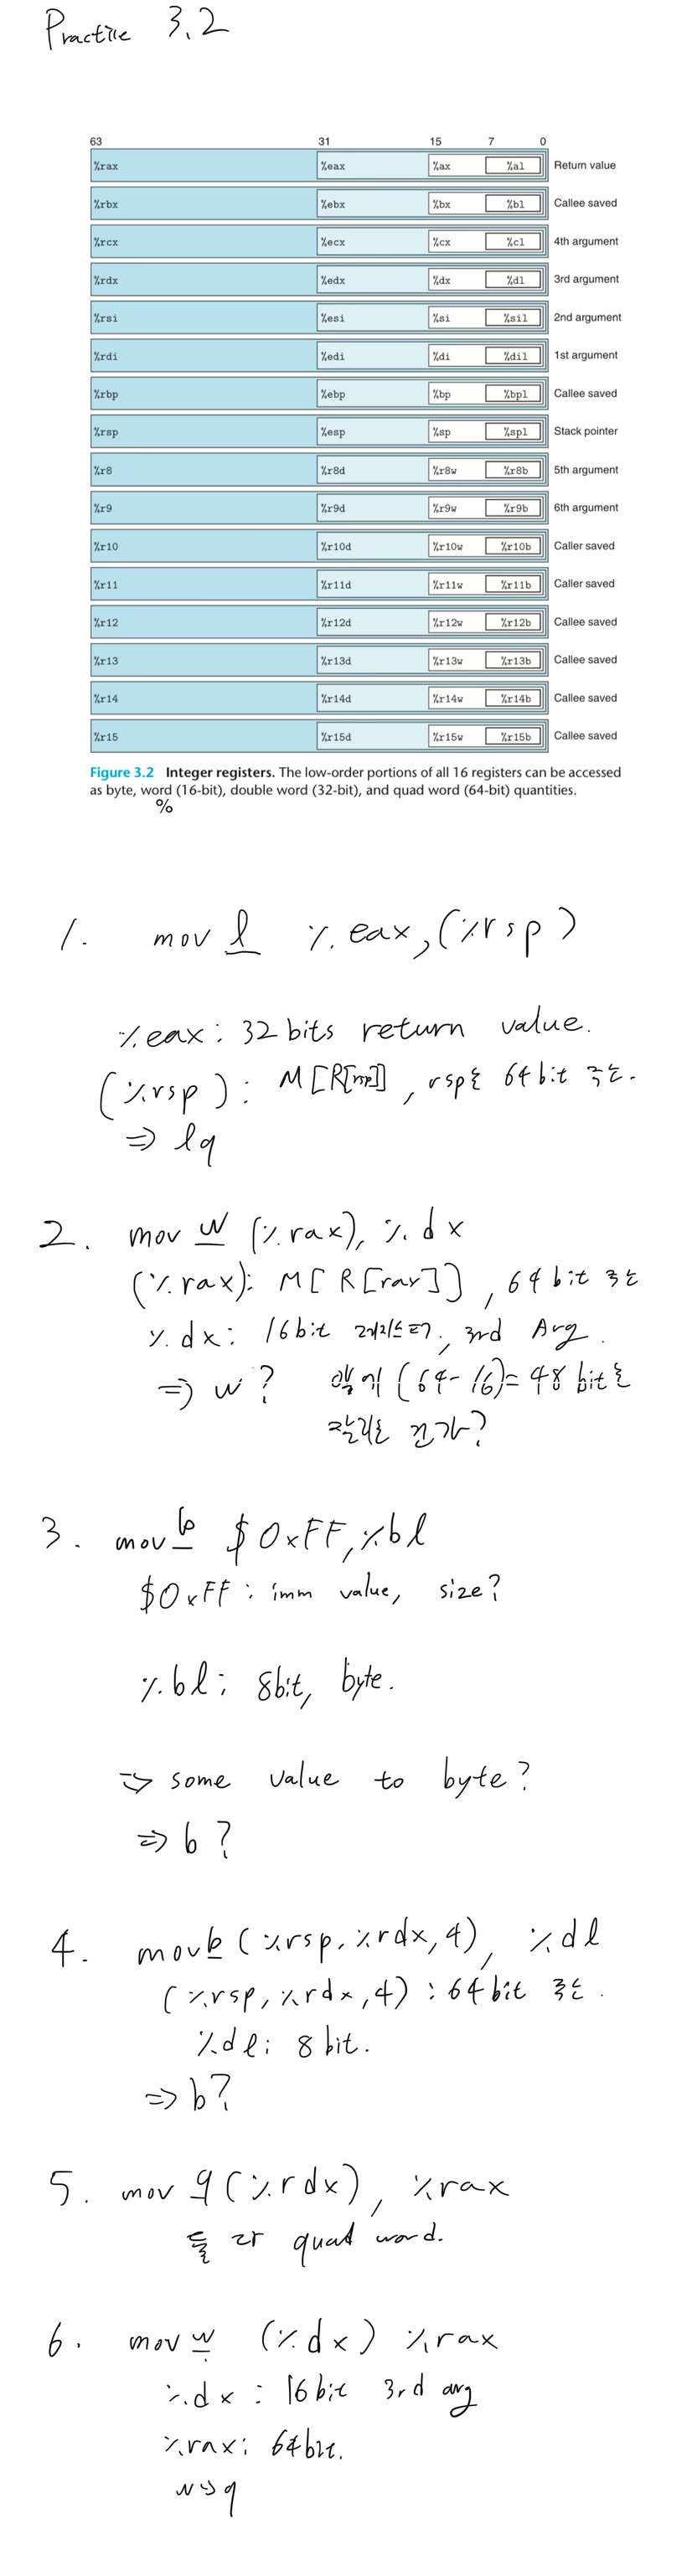 Practice 3.2
63 31 15 7 0
%rax %eax %ax %al Return value
%rbx %ebx %bx %bl Callee saved
%rcx %ecx %cx %cl 4th argument
%rdx %edx %dx %dl 3rd argument
%rsi %esi %si %sil 2nd argument
%rdi %edi %di %dil 1st argument
%rbp %ebp %bp %bpl Callee saved
%rsp %esp %sp %spl Stack pointer
%r8 %r8d %r8w %r8b 5th argument
%r9 %r9d %r9w %r9b 6th argument
%r10 %r10d %r10w %r10b Caller saved
%r11 %r11d %r11w %r11b Caller saved
%r12 %r12d %r12w %r12b Callee saved
%r13 %r13d %r13w %r13b Callee saved
%r14 %r14d %r14w %r14b Callee saved
%r15 %r15d %r15w %r15b Callee saved
Figure 3.2 Integer registers. The low-order portions of all 16 registers can be accessed
as byte, word (16-bit), double word (32-bit), and quad word (64-bit) quantities.
%
1. mov l %eax, (%rsp)
%eax: 32 bits return value.
(%rsp): M[R[rsp]], rsp는 64bit 주소.
⇒ lq
2. mov w (%rax), %dx
(%rax): M[R[rax]], 64bit 주소
%dx: 16bit 레지스터, 3rd Arg.
⇒ w? 앞에 (64-16)=48 bit는
잘리는 건가?
3. mov b $0xFF, %bl
$0xFF: imm value, size?
%bl: 8bit, byte.
⇒ some value to byte?
⇒ b?
4. movb (%rsp, %rdx, 4), %dl
(%rsp, %rdx, 4): 64bit 주소.
%dl: 8 bit.
⇒ b?
5. mov q (%rdx), %rax
둘 다 quad word.
6. mov w (%dx) %rax
%dx: 16bit 3rd arg
%rax: 64bit.
w→q